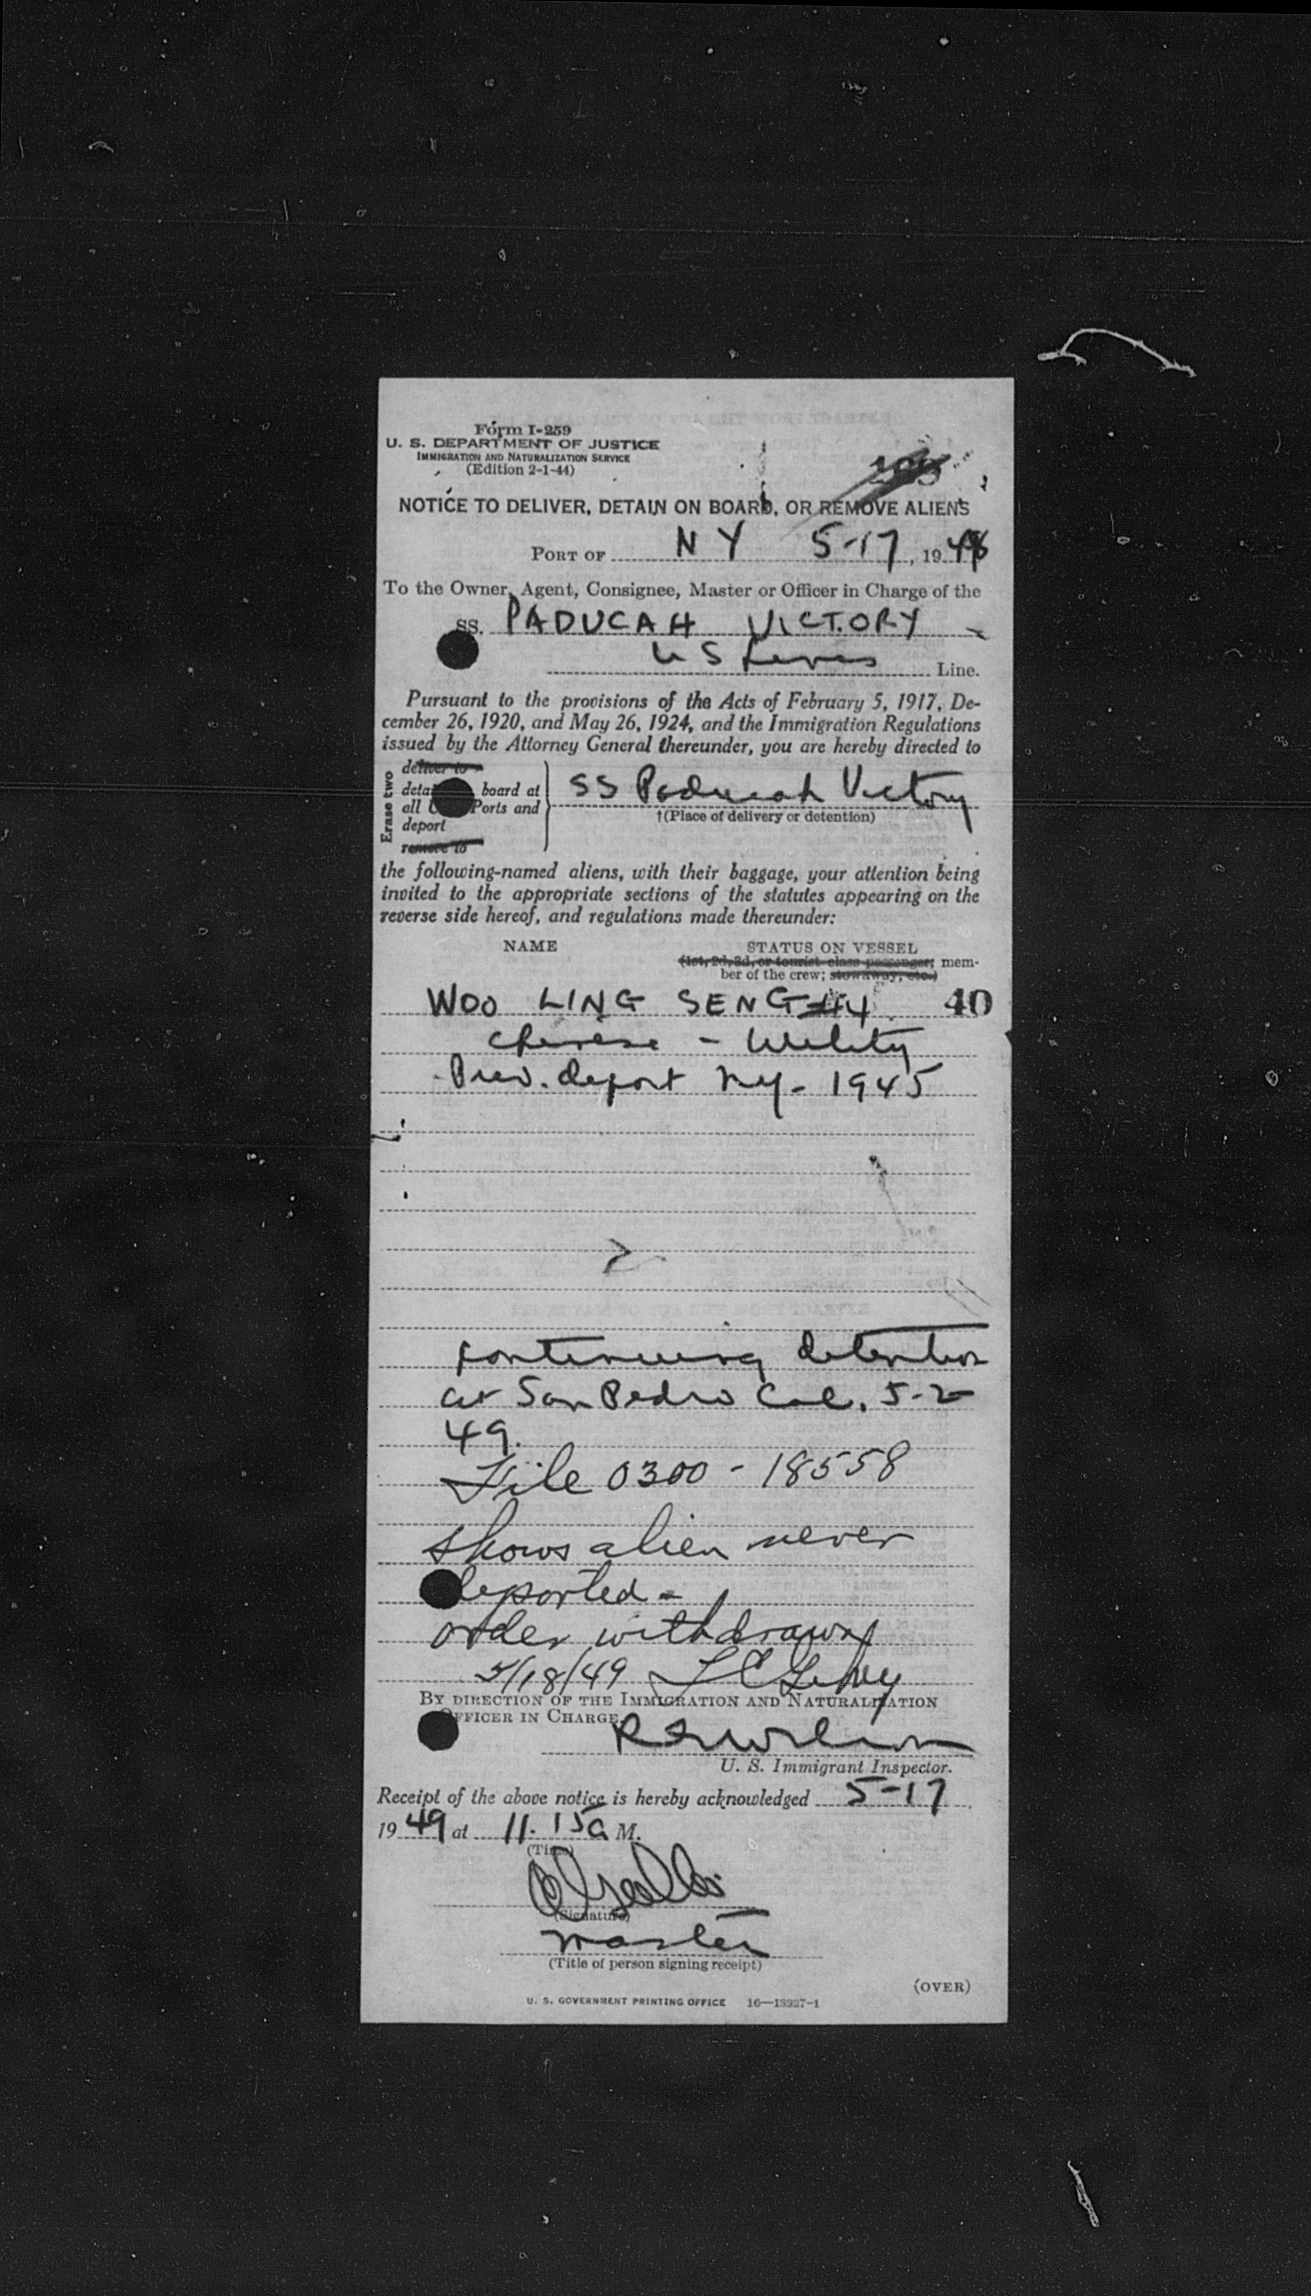 Form I-259
U. S. DEPARTMENT OF JUSTICE
IMMIGRATION AND NATURALIZATION SERVICE
(Edition 2-1-44)
NOTICE TO DELIVER, DETAIN ON BOARD, OR REMOVE ALIENS
PORT OF N Y 5-17, 19
To the Owner, Agent, Consignee, Master or Officer in Charge of the
SS. PADUCAH VICTORY
U S Lines Line.
Pursuant to the provisions of the Acts of February 5, 1917, De-
cember 26, 1920, and May 26, 1924, and the Immigration Regulations
issued by the Attorney General thereunder, you are hereby directed to
Erase two
deliver to
board at
all Ports and
deport
remove to
SS Paducah Victory
†(Place of delivery or detention)
the following-named aliens, with their baggage, your attention being
invited to the appropriate sections of the statutes appearing on the
reverse side hereof, and regulations made thereunder:
NAME STATUS ON VESSEL
(1st, 2d, 3d, or tourist class passenger; mem-
ber of the crew; stowaway, etc.)
WOO LING SENG #4 40
Chinese - Utility
Prev. deport NY - 1945
Continuing detention
at San Pedro Cal. 5-2
49.
File 0300-18558
shows alien never
deported -
order withdrawn
5/18/49
BY DIRECTION OF THE IMMIGRATION AND NATURALIZATION
OFFICER IN CHARGE.
U. S. Immigrant Inspector.
Receipt of the above notice is hereby acknowledged 5-17
19 49 at 11.15 a M.
(Time)
(Signature)
Master
(Title of person signing receipt)
(OVER)
U. S. GOVERNMENT PRINTING OFFICE 16—13327-1